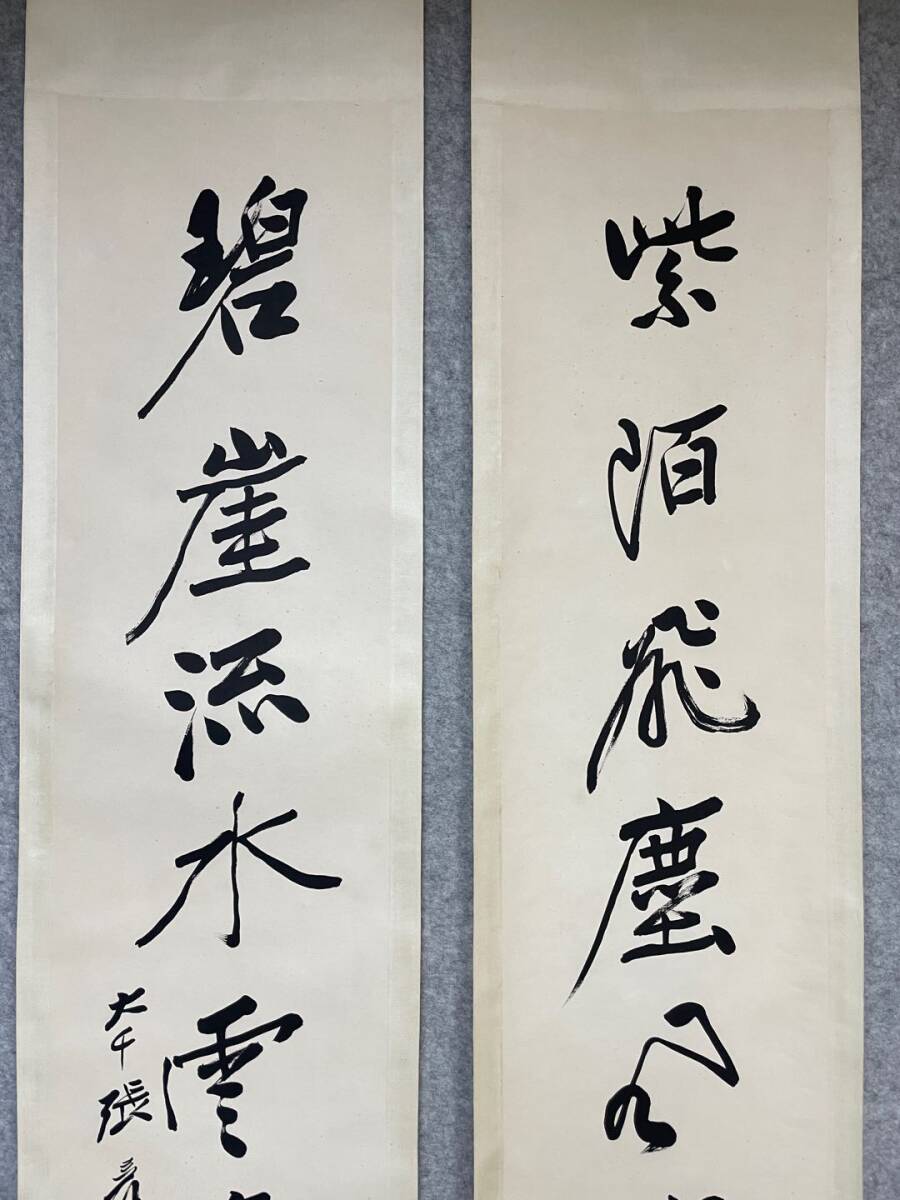 紫陌飛塵
碧崖流水雲
大千張爰